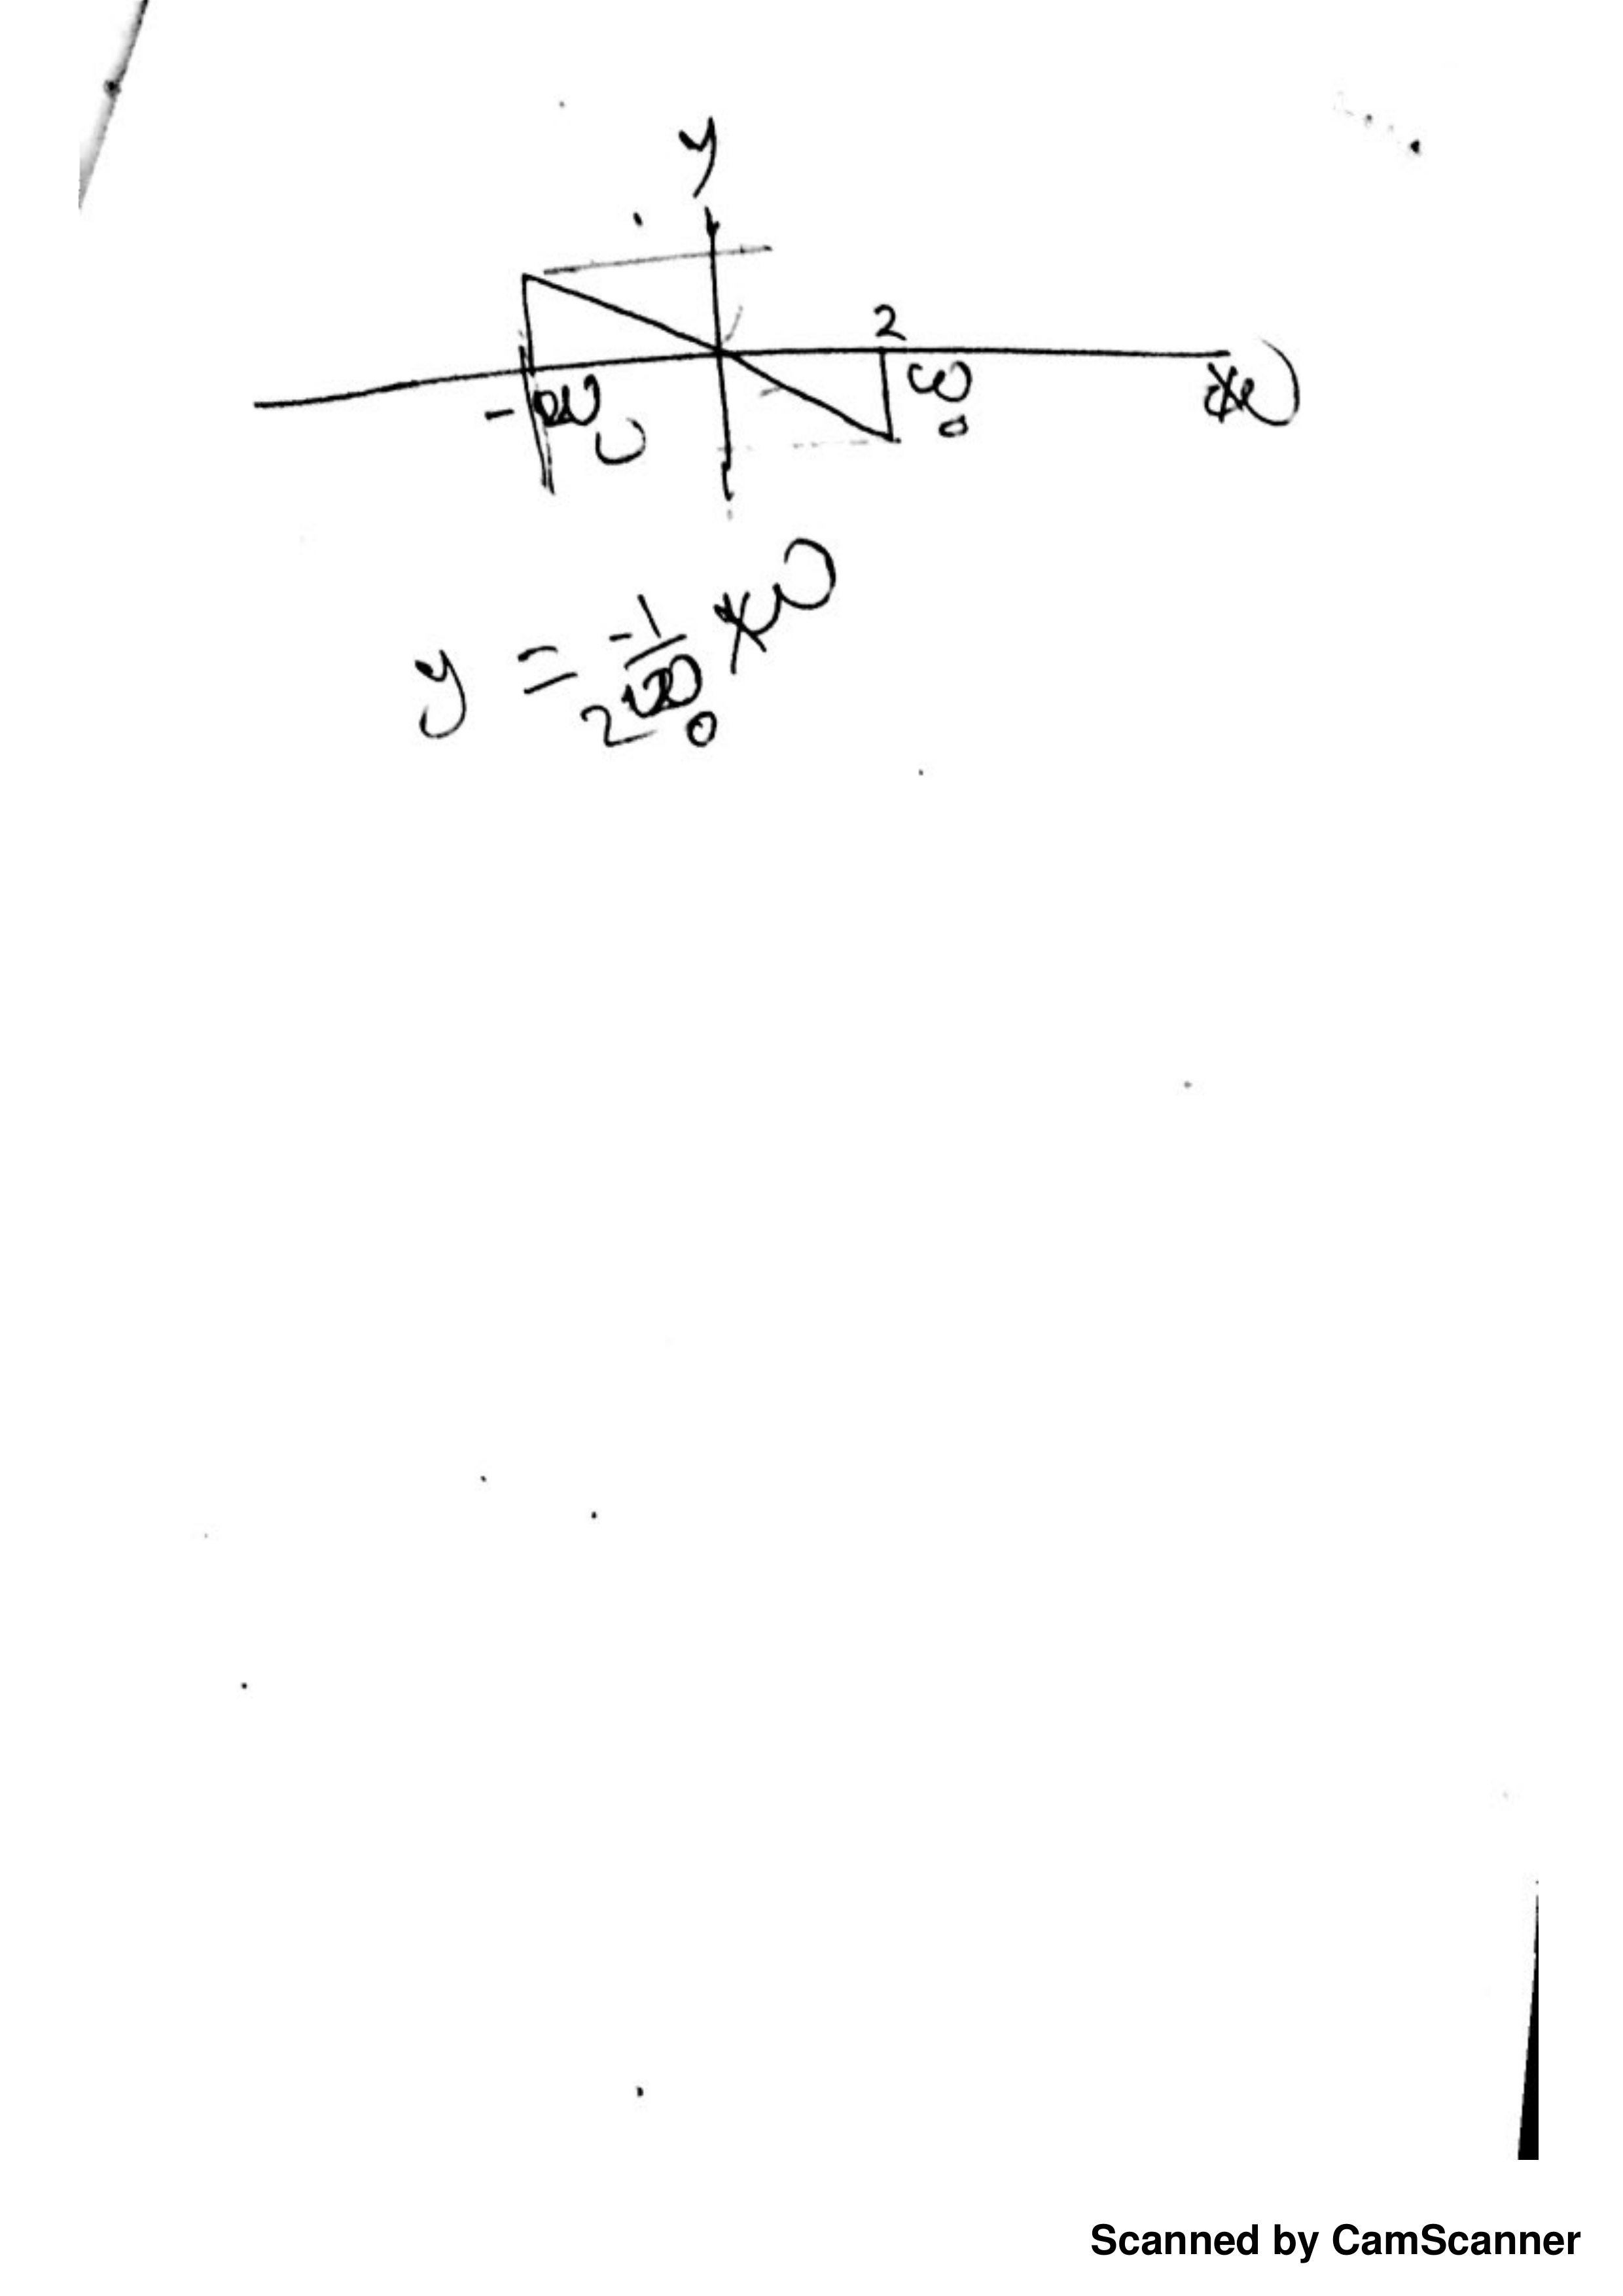 y
2
-ω₀
ω₀
ω
y = -1/2ω₀ ω
Scanned by CamScanner